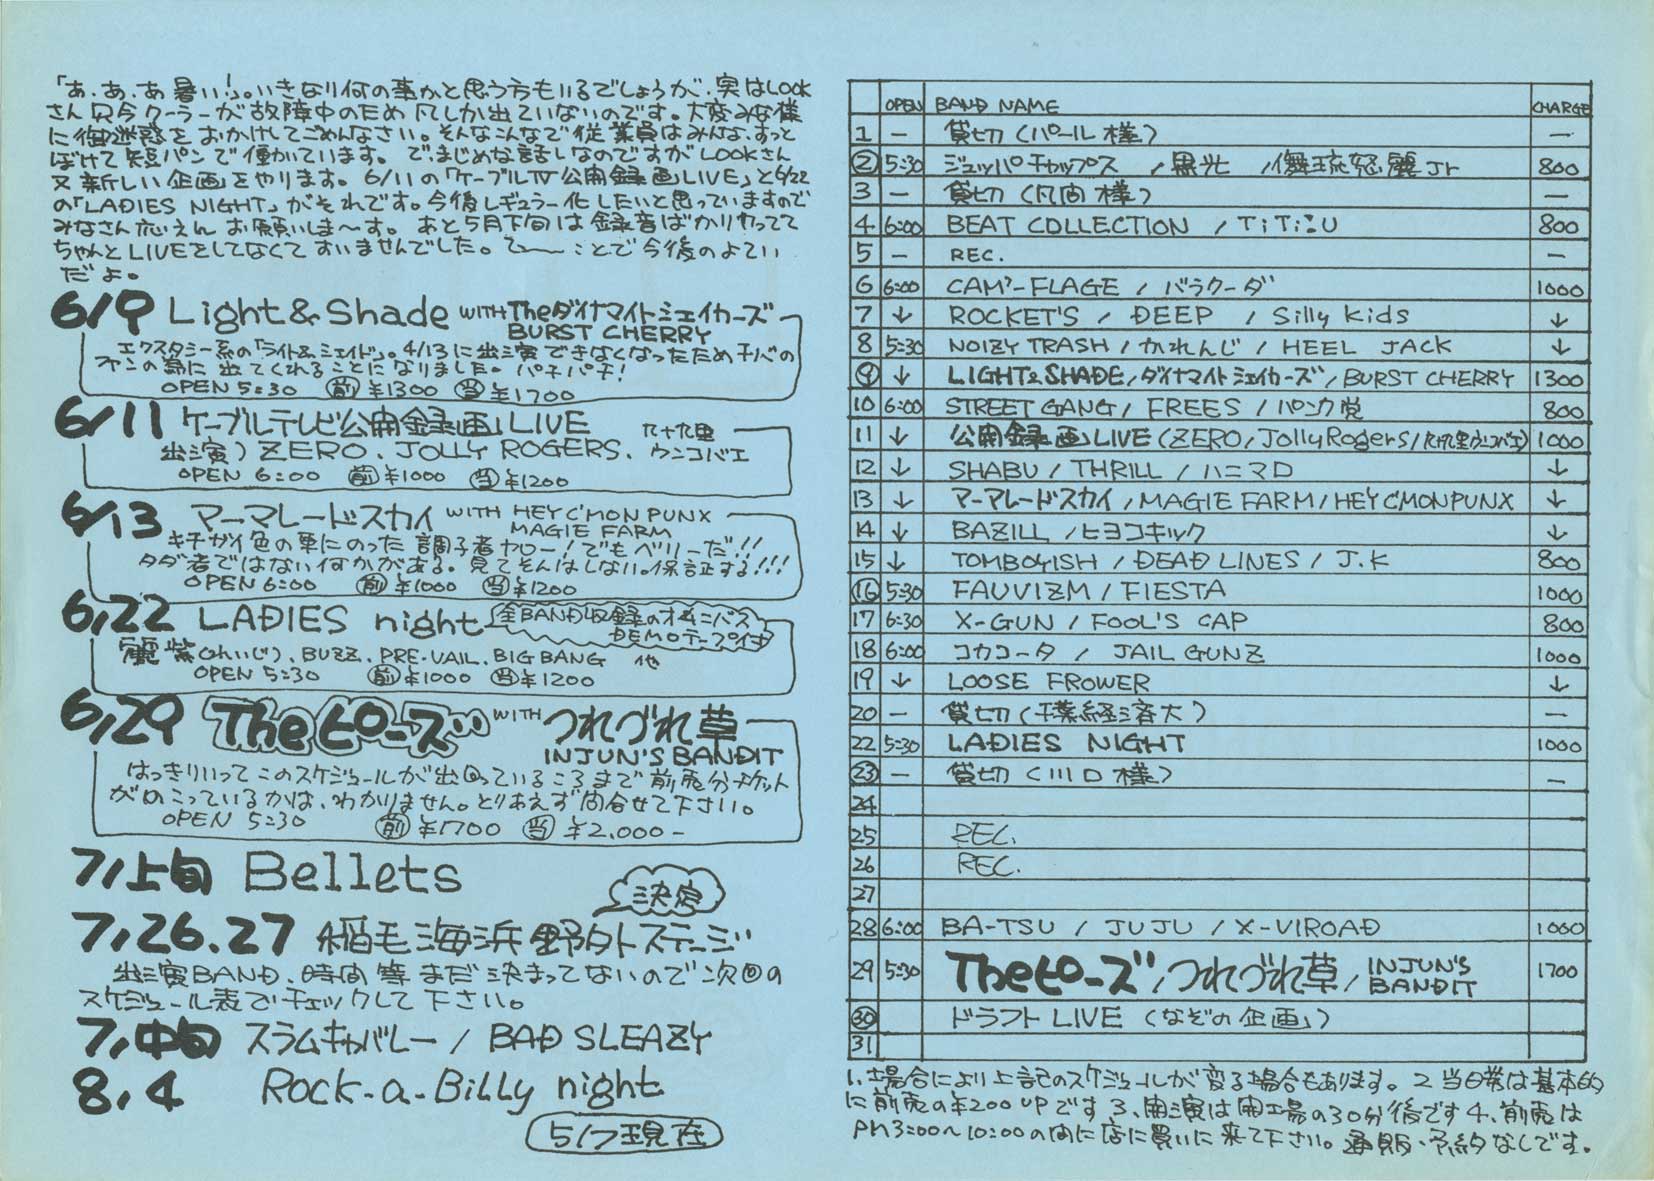 「あ、あ、あ暑い!」。いきなり何の事かと思う方もいるでしょうが、実はLOOK
さん只今クーラーが故障中のため 出ていないのです。大変みな様
に御迷惑をおかけしてごめんなさい。そんなこんなで従業員はみんな、すっと
ぼけて短パンで働いています。で、まじめな話しなのですがLOOKさん
又新しい企画をやります。6/11の「ケーブルTV公開録画LIVE」と6/22
の「LADIES NIGHT」がそれです。今後レギュラー化したいと思っていますので
みなさん応えんお願いしま〜す。あと5月下旬は録音ばかりやってて
ちゃんとLIVEをしてなくてすいませんでした。て〜ことで今後のよてい
だよ。
6/9 Light & Shade WITH Theダイナマイトシェイカーズ
BURST CHERRY
エクスタシー系の「ライト&シェイド」。4/13に出演できなくなったためチバの
ファンの為に出てくれることになりました。パチパチ!
OPEN 5:30 前 ¥1300 当 ¥1700
6/11 ケーブルテレビ公開録画LIVE
出演)ZERO、JOLLY ROGERS、九十九里ウンコバエ
OPEN 6:00 前 ¥1000 当 ¥1200
6/13 マーマレードスカイ WITH HEY C'MON PUNX
MAGIE FARM
キチガイ色の車にのった調子者ヤロー!でもベリーだ!!
タダ者ではない何かがある。見てそんはしない。保証する!!!
OPEN 6:00 前 ¥1000 当 ¥1200
6/22 LADIES night 全BAND収録のオムニバス
DEMOテープ付
麗紫(れいじ)、BUZZ、PRE-VAIL、BIG BANG 他
OPEN 5:30 前 ¥1000 当 ¥1200
6/29 Theピーズ WITH つれづれ草
INJUN'S BANDIT
はっきりいってこのスケジュールが出回っているころまで前売分チケット
がのこっているかは、わかりません。とりあえず問合せて下さい。
OPEN 5:30 前 ¥1700 当 ¥2,000-
7/上旬 Bellets
7/26.27 稲毛海浜野外ステージ 決定
出演BAND、時間等まだ決まってないので次回の
スケジュール表でチェックして下さい。
7/中旬 スラムキャバレー / BAD SLEAZY
8/4 Rock-a-Billy night
5/7現在
OPEN BAND NAME CHARGE
1 — 貸切(パール様) —
② 5:30 ジュッパチャップス / 黒光 / 儛琉怒麗Jr 800
3 — 貸切(凡間様) —
4 6:00 BEAT COLLECTION / TiTi:U 800
5 — REC. —
6 6:00 CAM'-FLAGE / バラクーダ 1000
7 ↓ ROCKET'S / DEEP / Silly Kids ↓
8 5:30 NOIZY TRASH / かれんじ / HEEL JACK ↓
⑨ ↓ LIGHT&SHADE/ダイナマイトシェイカーズ/BURST CHERRY 1300
10 6:00 STREET GANG / FREES / パンク党 800
11 ↓ 公開録画LIVE(ZERO/Jolly Rogers/九十九里ウンコバエ) 1000
12 ↓ SHABU / THRILL / ハニマロ ↓
13 ↓ マーマレードスカイ/MAGIE FARM/HEY C'MON PUNX ↓
14 ↓ BAZILL /ヒヨコキック ↓
15 ↓ TOMBOYISH / DEAD LINES / J.K 800
⑯ 5:30 FAUVIZM / FIESTA 1000
17 6:30 X-GUN / FOOL'S CAP 800
18 6:00 コカコータ / JAIL GUNZ 1000
19 ↓ LOOSE FROWER ↓
20 — 貸切(千葉経済大) —
22 5:30 LADIES NIGHT 1000
㉓ — 貸切(川口様) —
24
25 REC.
26 REC.
27
28 6:00 BA-TSU / JUJU / X-VIROAD 1000
29 5:30 Theピーズ/つれづれ草/INJUN'S BANDIT 1700
㉚ ドラフトLIVE(なぞの企画)
31
1、場合により上記のスケジュールが変る場合もあります。2 当日券は基本的
に前売の¥200UPです 3、開演は開場の30分後です 4、前売は
PM3:00〜10:00の間に店に買いに来て下さい。通販・予約なしです。